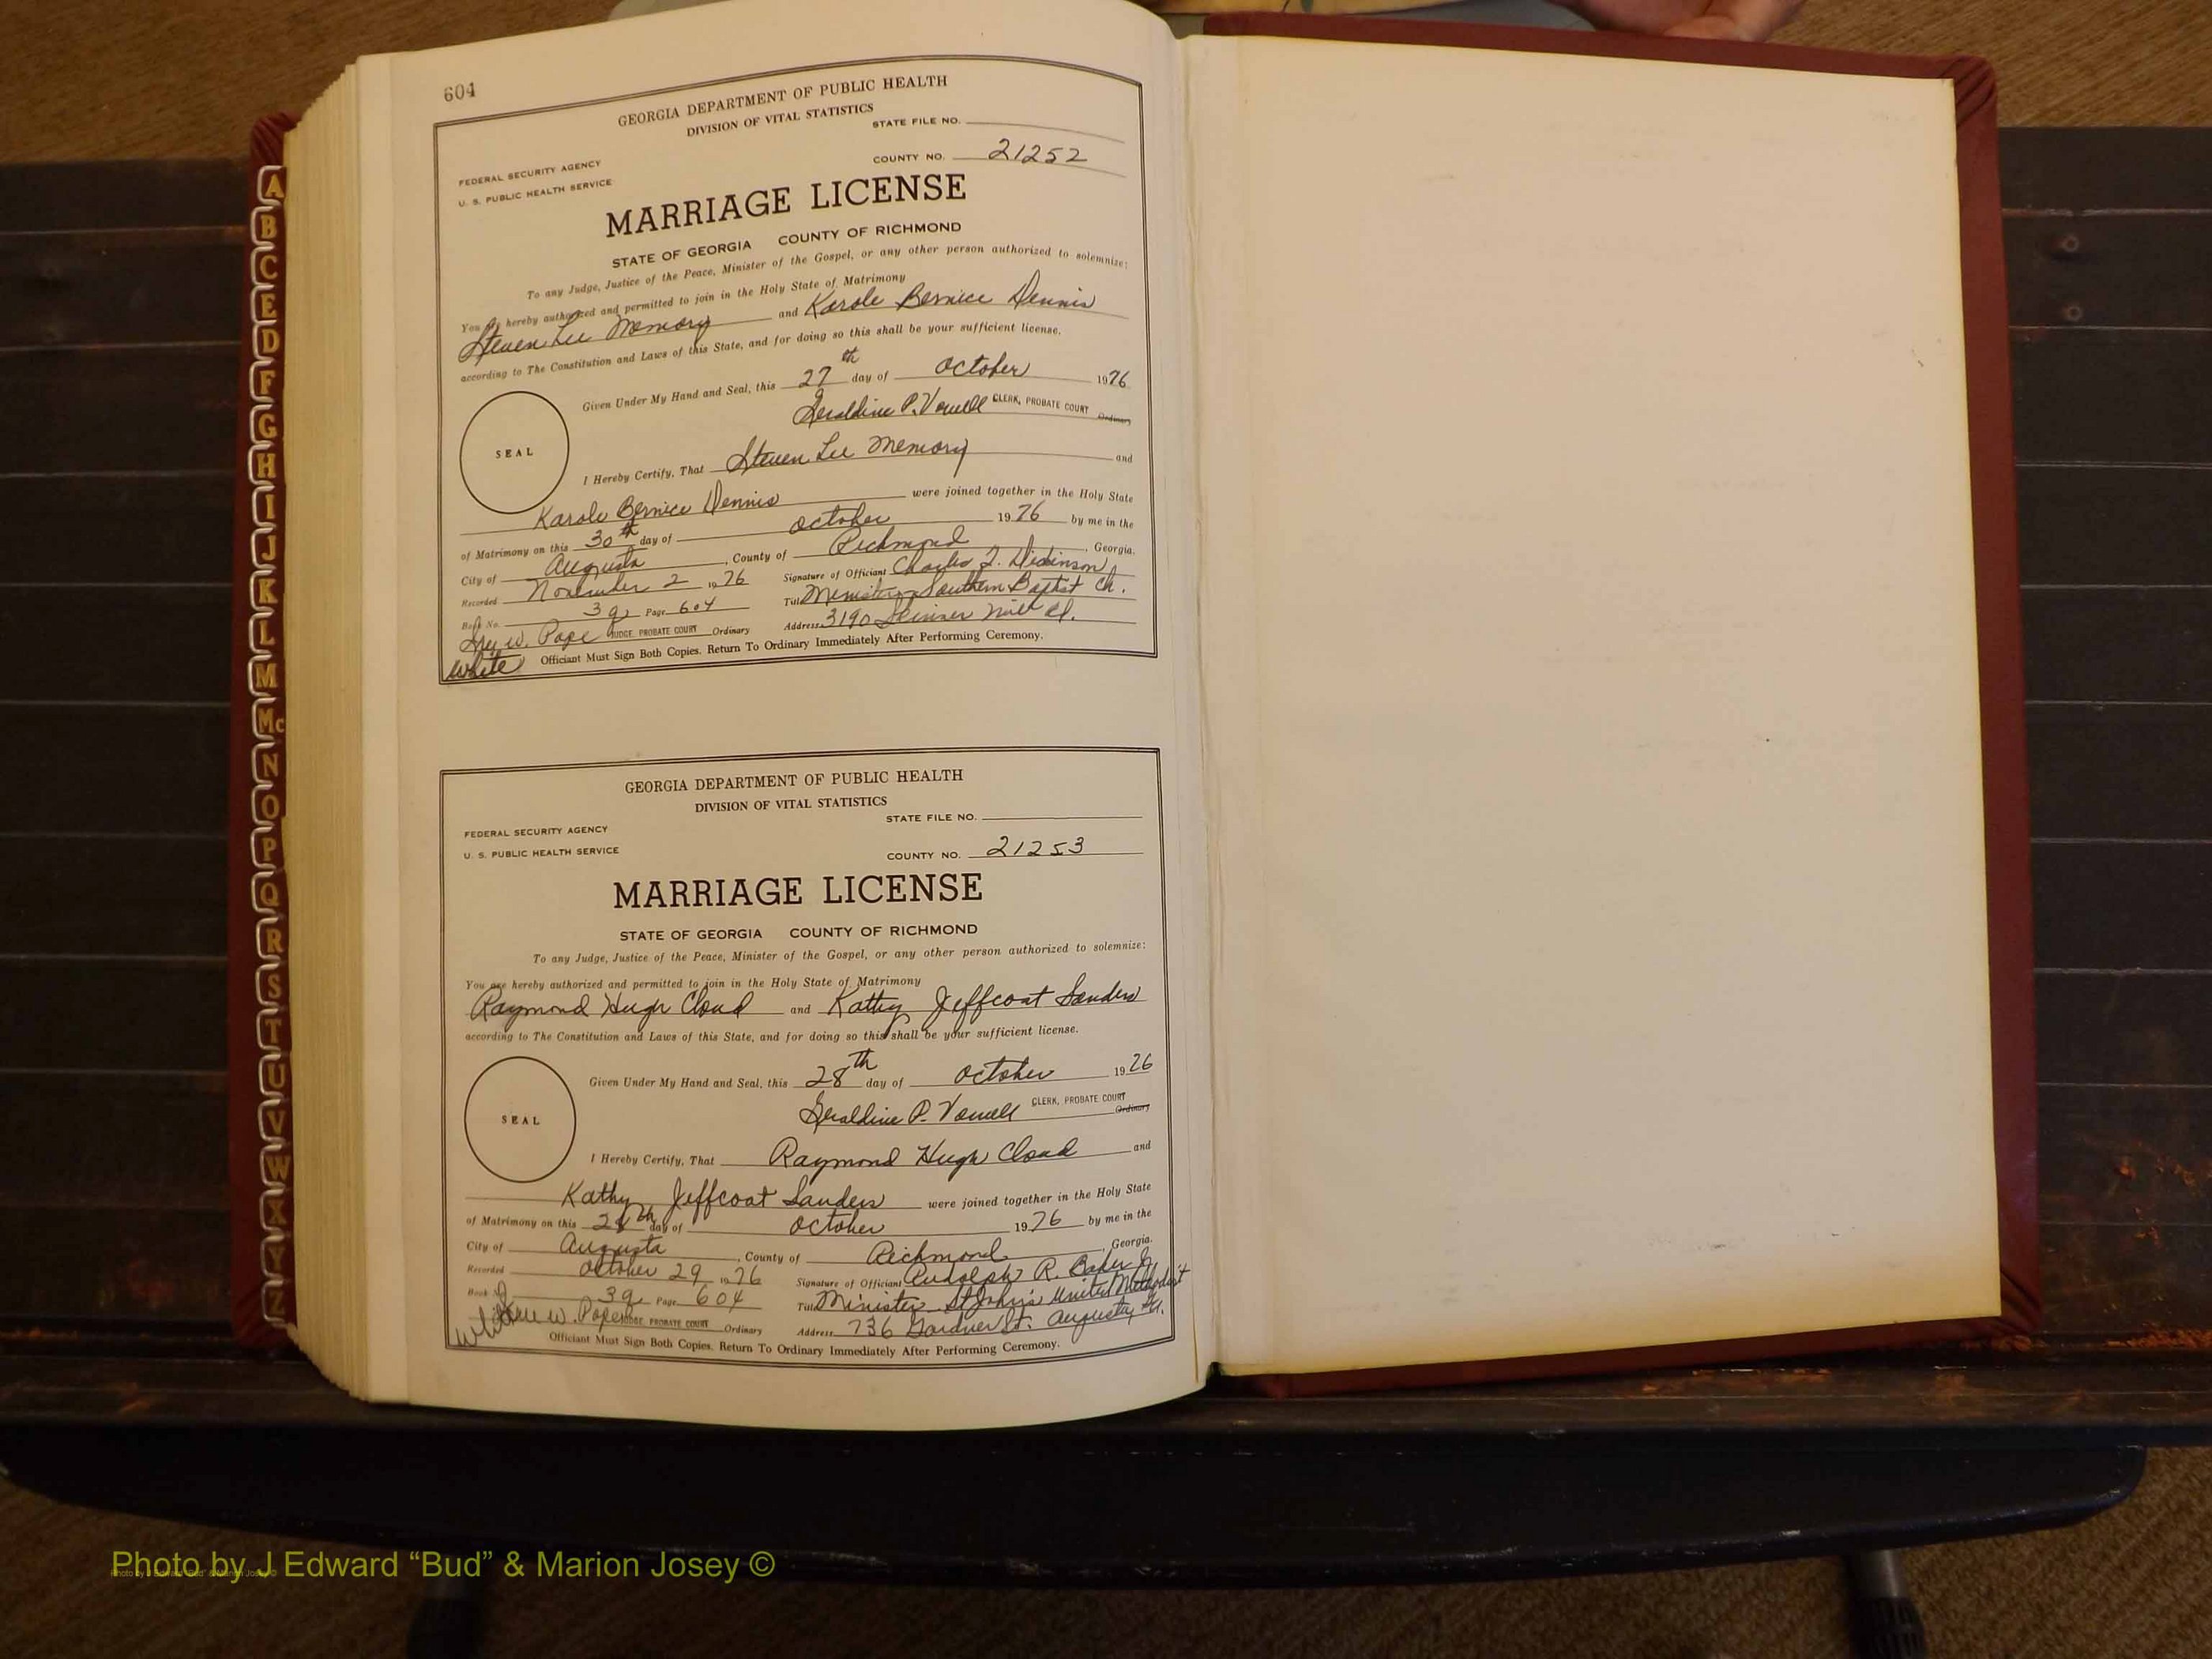 604
GEORGIA DEPARTMENT OF PUBLIC HEALTH
DIVISION OF VITAL STATISTICS
STATE FILE NO.
FEDERAL SECURITY AGENCY
COUNTY NO. 21252
U. S. PUBLIC HEALTH SERVICE
MARRIAGE LICENSE
STATE OF GEORGIA COUNTY OF RICHMOND
To any Judge, Justice of the Peace, Minister of the Gospel, or any other person authorized to solemnize:
You are hereby authorized and permitted to join in the Holy State of Matrimony
Steven Lee Memory and Karole Bernice Dennis
according to The Constitution and Laws of this State, and for doing so this shall be your sufficient license.
Given Under My Hand and Seal, this 27th day of October 1976
Geraldine P. Vowell CLERK, PROBATE COURT Ordinary
SEAL
I Hereby Certify, That Steven Lee Memory and
Karole Bernice Dennis were joined together in the Holy State
of Matrimony on this 30th day of October 1976 by me in the
City of Augusta, County of Richmond, Georgia.
Recorded November 2 1976 Signature of Officiant Charles Dickinson
Book No. 3q Page 604 Title Minister Southern Baptist Ch.
W. Pope JUDGE, PROBATE COURT Ordinary Address 3190 Skinner Mill Rd.
White Officiant Must Sign Both Copies. Return To Ordinary Immediately After Performing Ceremony.
GEORGIA DEPARTMENT OF PUBLIC HEALTH
DIVISION OF VITAL STATISTICS
STATE FILE NO.
FEDERAL SECURITY AGENCY
COUNTY NO. 21253
U. S. PUBLIC HEALTH SERVICE
MARRIAGE LICENSE
STATE OF GEORGIA COUNTY OF RICHMOND
To any Judge, Justice of the Peace, Minister of the Gospel, or any other person authorized to solemnize:
You are hereby authorized and permitted to join in the Holy State of Matrimony
Raymond Hugh Cloud and Kathy Jeffcoat Sanders
according to The Constitution and Laws of this State, and for doing so this shall be your sufficient license.
Given Under My Hand and Seal, this 28th day of October 1976
Geraldine P. Vowell CLERK, PROBATE COURT Ordinary
SEAL
I Hereby Certify, That Raymond Hugh Cloud and
Kathy Jeffcoat Sanders were joined together in the Holy State
of Matrimony on this 28th day of October 1976 by me in the
City of Augusta, County of Richmond, Georgia.
Recorded October 29 1976 Signature of Officiant Rudolph R. Baker Jr.
Book No. 3q Page 604 Title Minister St John's United Methodist
White W. Pope JUDGE, PROBATE COURT Ordinary Address 736 Gardner St. Augusta, Ga.
Officiant Must Sign Both Copies. Return To Ordinary Immediately After Performing Ceremony.
A
B
C
E
D
F
G
H
I
J
K
L
M
Mc
N
O
P
Q
R
S
T
U
V
W
X
Y
Z
Photo by J Edward “Bud” & Marion Josey ©
Photo by J Edward “Bud” & Marion Josey ©